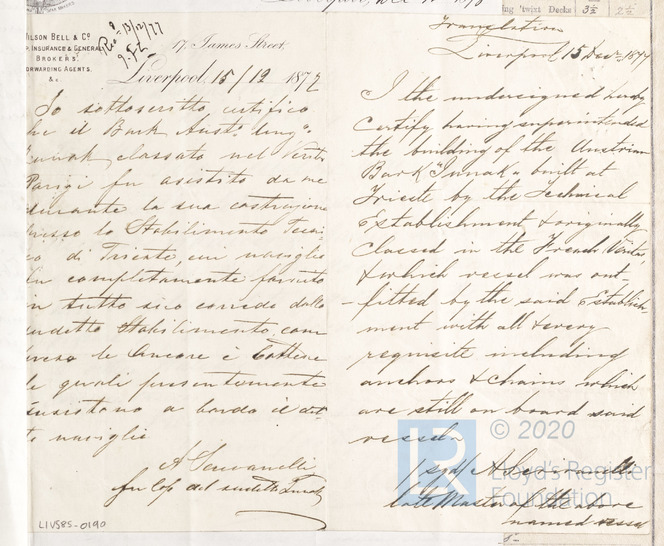 ng 'twixt Decks 3½ 2½
ILSON BELL & Co
P, INSURANCE & GENERAL
BROKERS.
ORWARDING AGENTS,
&c
Rec 13/12/77
17, James Street,
Liverpool, 15/12 1877
Io sottoscritto certifico
che il Bark Austo Ungo
classato nel Veritas
Parigi fu assistito da me
durante la sua costruzione
presso lo Stabilimento Tecni
co di Trieste, cui naviglio
fu completamente fornito
in tutto suo corredo dallo
sudetto Stabilimento com
preso le Ancore e Cattene
le quali presentemente
esistono a bordo il det
to naviglio
A
Translation
Liverpool 15 Decr, 1877
I the undersigned hereby
Certify having superintended
the building of the Austrian
Bark "Iunak" built at
Trieste by the Technical
Establishment & originally
Classed in the French Veritas,
& which vessel was out
-fitted by the said Establish-
ment with all & every
requisite including
anchors & chains which
are still on board said
vessel
/sgd/ A
late Master of the above
named vessel
LIVS85-0190
LR
© 2020
Lloyd's Register
Foundation